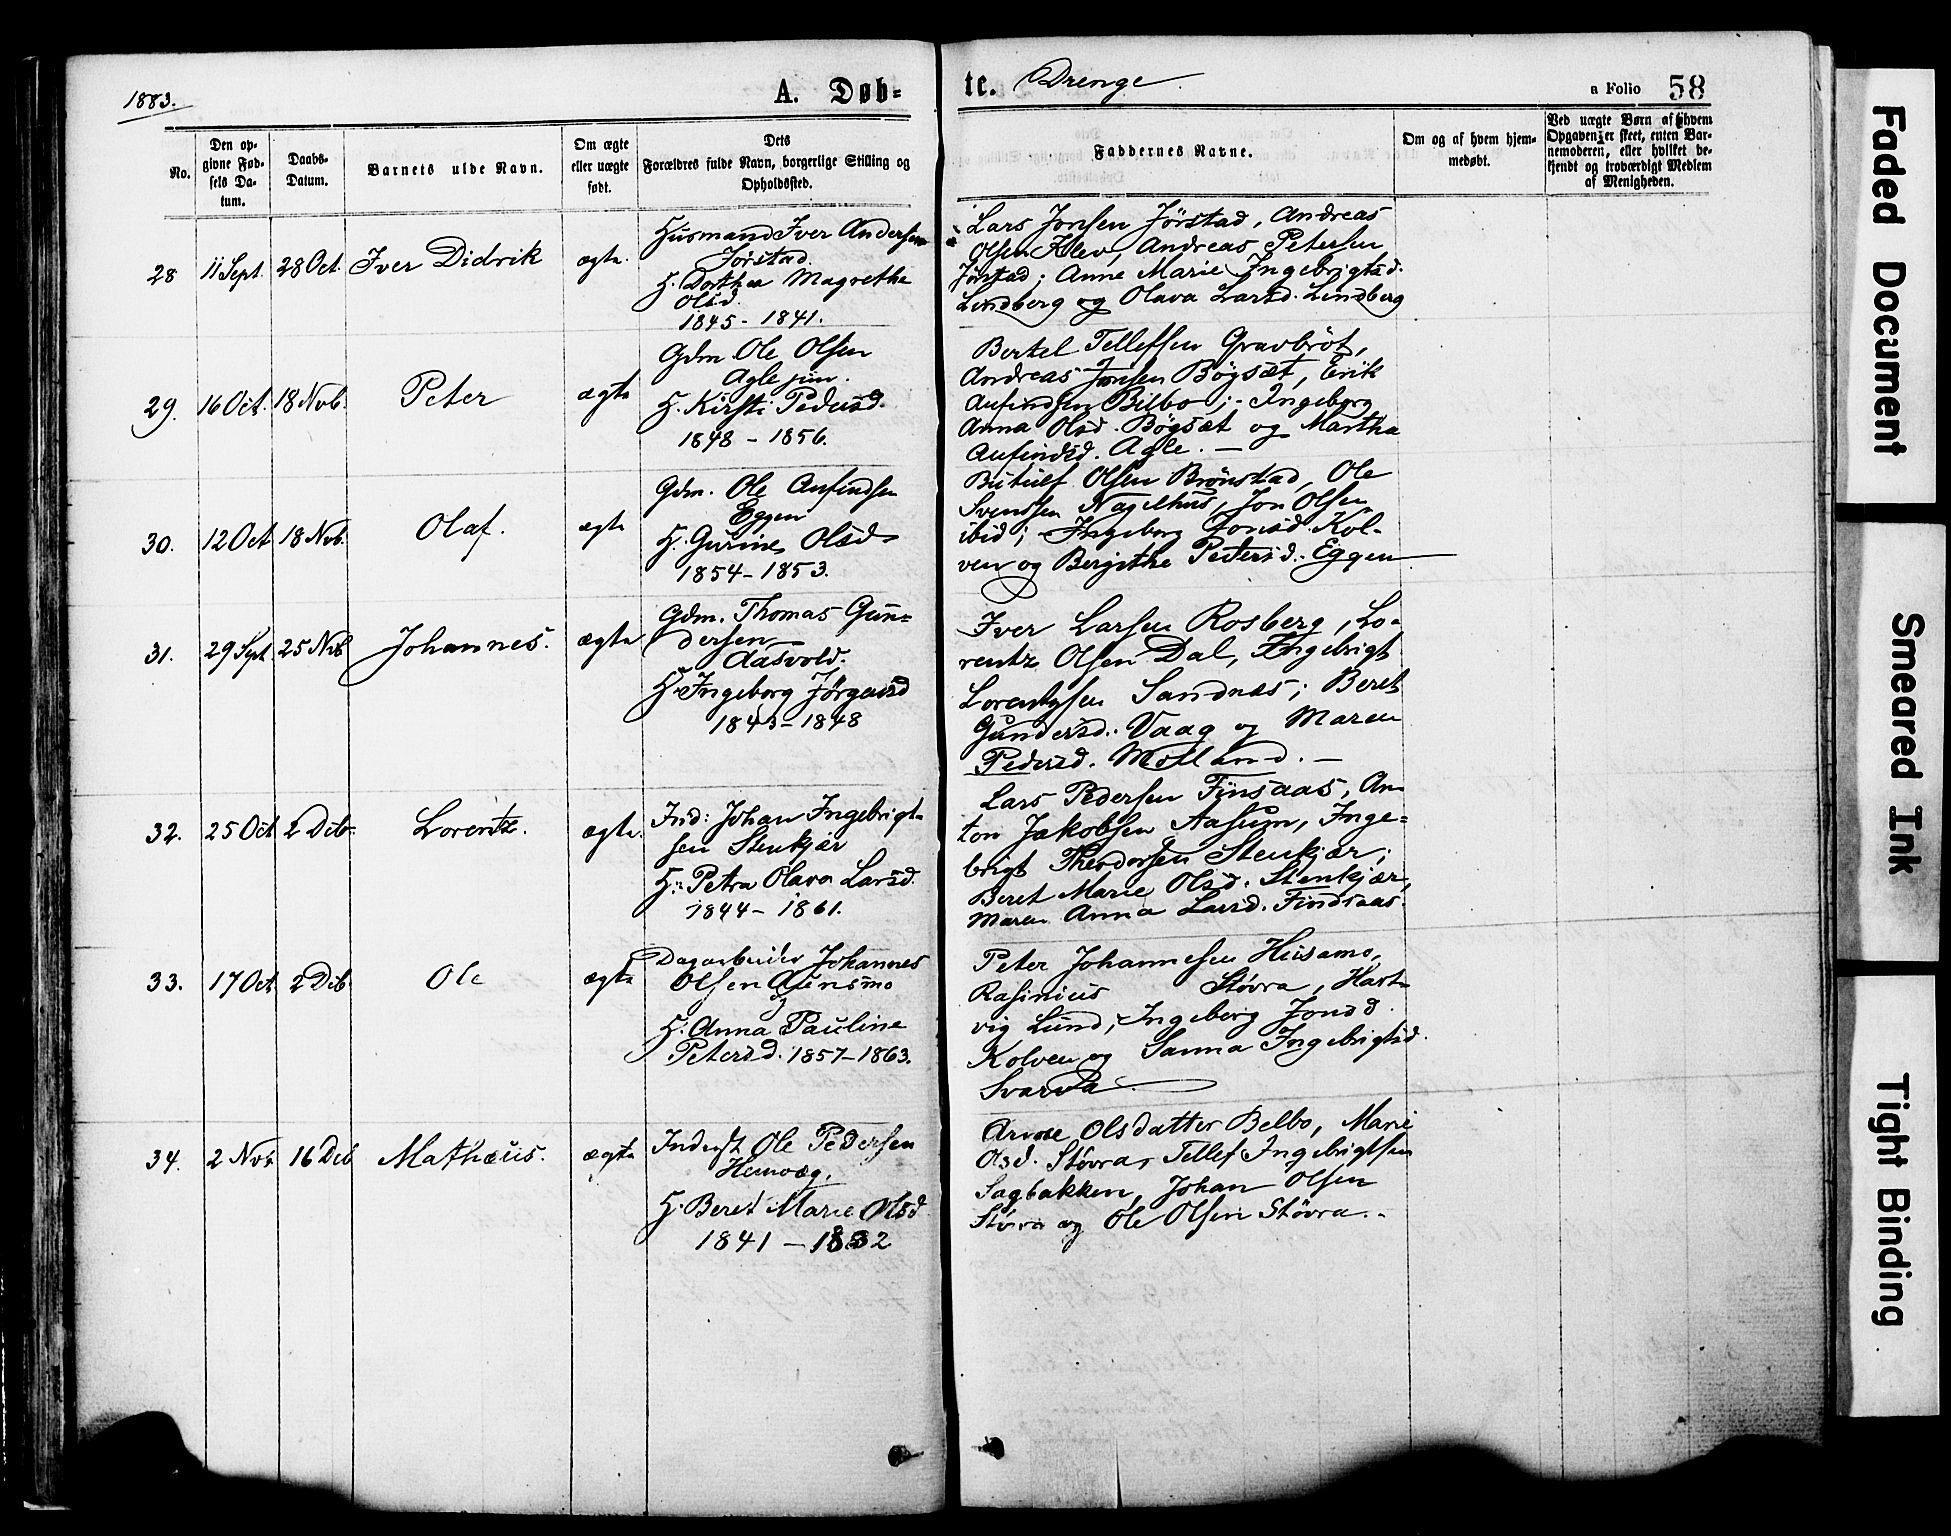 1883.
A. Døb=
te. Drenge.
a Folio 58
No.
Den op-
givne Fød-
sels Da-
tum.
Daabs-
Datum.
Barnets ulde Navn.
Om ægte
eller uægte
født.
Dets
Forældres fulde Navn, borgerlige Stilling og
Opholdssted.
Faddernes Navne.
Om og af hvem hjem-
medøbt.
Ved uægte Børn af hvem
Opgaven er skeet, enten Bar-
nemoderen, eller hvilket be-
kjendt og troværdigt Medlem
af Menigheden.
28 11 Sept. 28 Oct. Iver Didrik ægte.
Husmand Iver Andersen
Jørstad.
H. Dorthea Magrethe
Olsd.
1845 - 1841.
Lars Jonsen Jørstad, Andreas
Olsen Klev, Andreas Petersen
Jørstad; Anne Marie Ingebrigtsd.
Lindberg og Olava Larsd. Lindberg
29. 16 Oct. 18 Nvb. Peter ægte
Gdm. Ole Olsen
Agle jun.
H. Kirsti Pedersd.
1848 - 1856.
Bertel Tellefsen Gravbröt,
Andreas Jonsen Bögsæt, Erik
Anfindsen Bilbo; - Ingeborg
Anna Olsd. Bøgsæt og Martha
Anfindsd. Agle. —
30. 12 Oct 18 Nvb. Olaf. ægte
Gdm. Ole Anfindsen
Eggen
H. Gurine Olsd
1854 - 1853.
Butulf Olsen Brönstad, Ole
Svendsen Nagelhus, Jon Olsen
ibid; - Ingeborg Jonsd. Kol-
ven og Bergithe Petersd. Eggen
31. 29 Sept. 25 Nvb Johannes. ægte
Gdm. Thomas Gun=
dersen
Aasvold.
H. Ingeborg Jørgensd
1843 - 1848
Iver Larsen Rosberg, Lo-
rentz Olsen Dal, Ingebrigt
Lorentzsen Sandnæs; Beret
Gundersd. Vaag og Maren
Pedersd. Moland. —
32. 25 Oct 2 Dcb. Lorentz. ægte.
Ind: Johan Ingebrigt-
sen Stenkjær
H: Petra Olava Larsd.
1844 - 1861.
Lars Pedersen Finsaas, An-
ton Jakobsen Aasum, Inge=
brigt Theodorsen Stenkjær;
Beret Marie Olsd. Stenkjær,
Maren Anna Larsd. Findsaas.
33. 17 Oct 2 Dcb Ole ægte
Dagarbeider Johannes
Olsen Aunsmo
og
H. Anna Pauline
Petersd. 1857 - 1863.
Peter Johannesen Husamo,
Rasinius Støvra, Hart-
vig Lund; Ingeborg Jonsd.
Kolven og Sanna Ingebrigtsd.
Svarva
34. 2 Nvb 16 Dcb Mathæus. ægte
Inderst Ole Pedersen
Heimvæg.
H. Beret Marie Olsd
1841 — 1832
Anne Olsdatter Belbo, Marie
Olsd. Støvra, Tellef Ingebrigtsen
Sagbakken, Johan Olsen
Støvra og Ole Olsen Støvra. -
Faded Document
Smeared Ink
Tight Binding